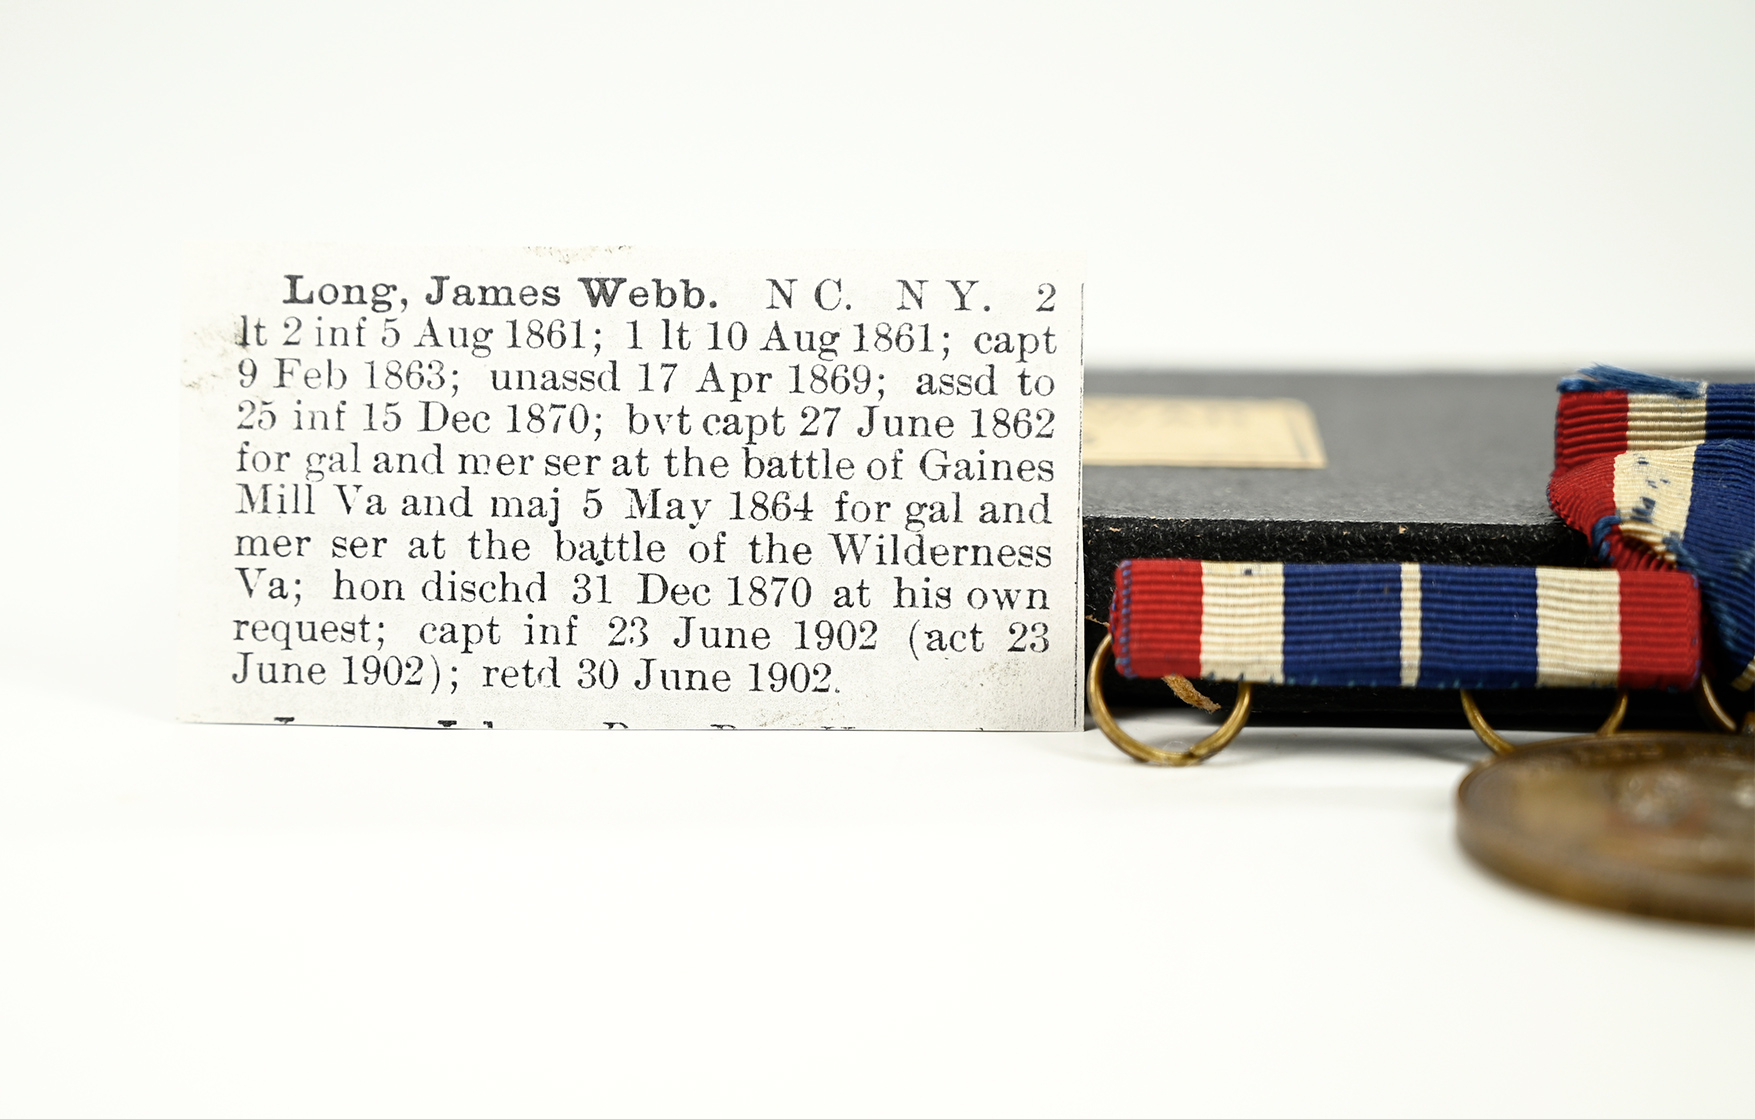 Long, James Webb. N C. N Y. 2
lt 2 inf 5 Aug 1861; 1 lt 10 Aug 1861; capt
9 Feb 1863; unassd 17 Apr 1869; assd to
25 inf 15 Dec 1870; bvt capt 27 June 1862
for gal and mer ser at the battle of Gaines
Mill Va and maj 5 May 1864 for gal and
mer ser at the battle of the Wilderness
Va; hon dischd 31 Dec 1870 at his own
request; capt inf 23 June 1902 (act 23
June 1902); retd 30 June 1902.